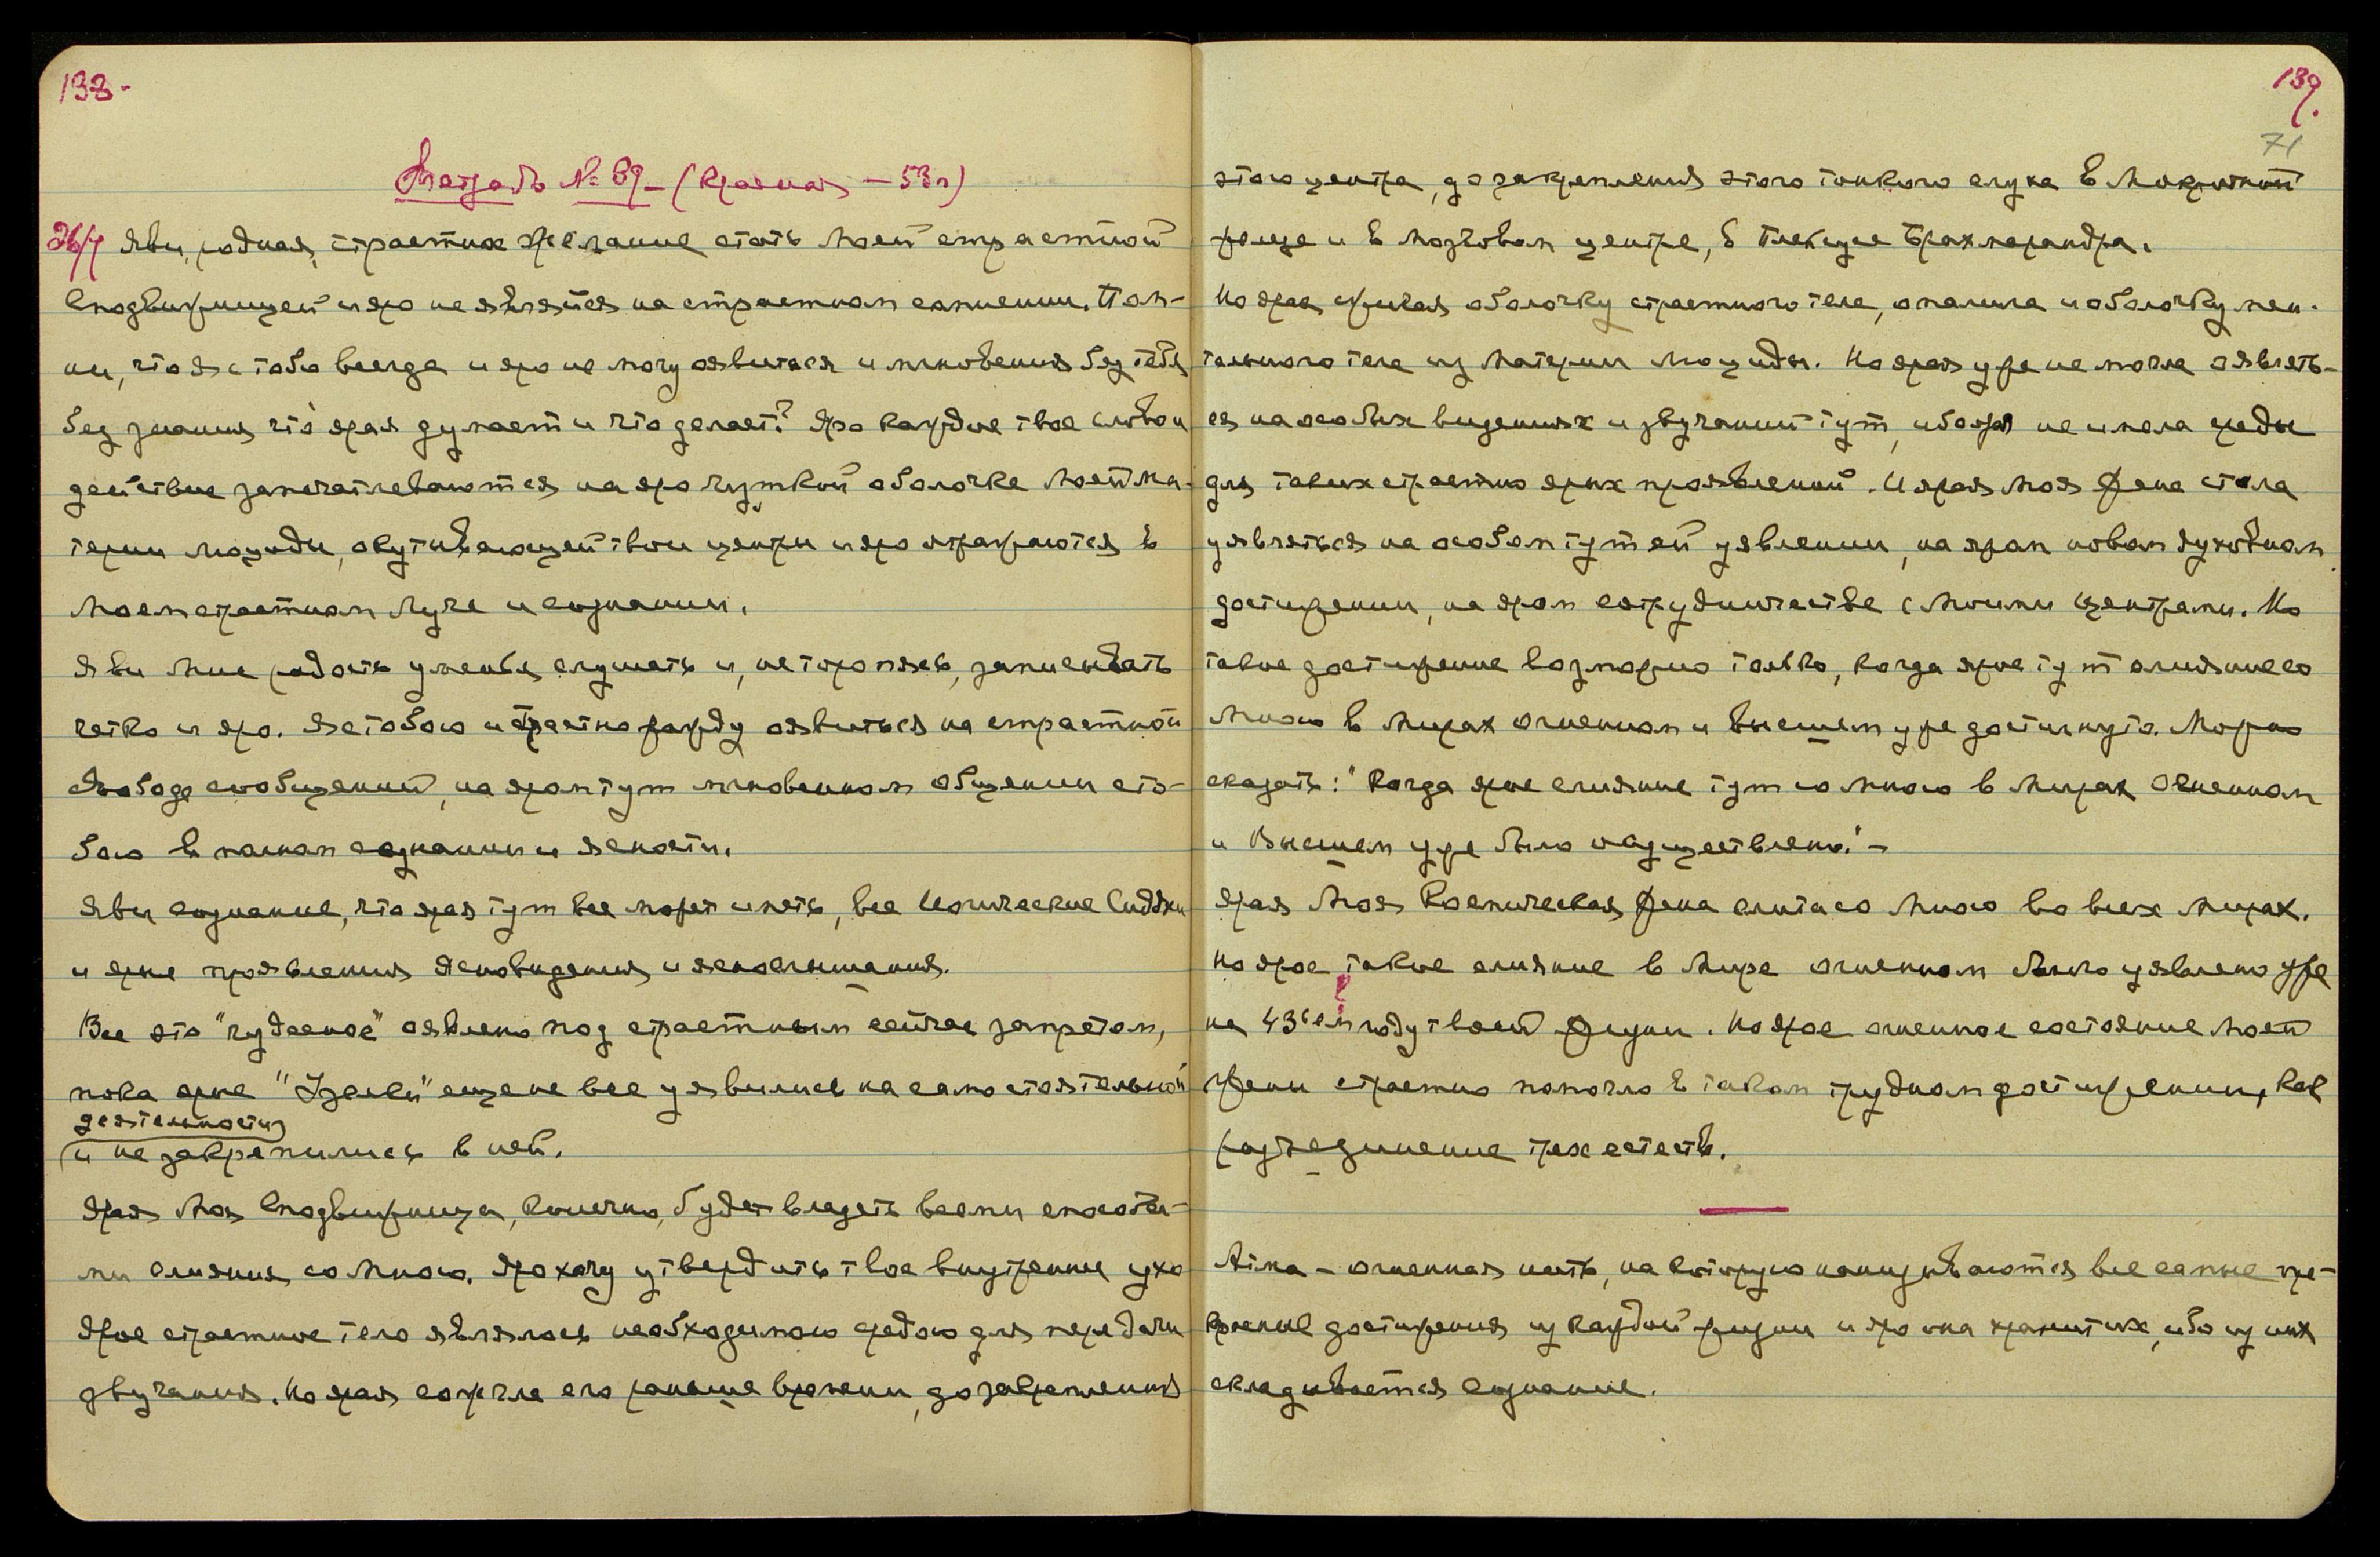 138.
Тетрадь № 69 – (Красная – 53 г)
26/4 Яви, родная, страстное желание стать Моей страстной
Сподвижницей и яро не являйся на страстном сомнении. Пом-
ни, что Я с тобою всегда и яро не могу оявиться и мгновения без тебя,
без знания, что ярая думает и что делает? Яро каждое твое слово и
действие запечатлеваются на яро чуткой оболочке Моей Ма-
терии Люциды, окутывающей твои центры и яро отражаются в
Моем страстном Луче и сознании.
Яви Мне радость уменья слушать и, не торопясь, записывать
четко и яро. Я с тобою и страстно жажду оявиться на страстной
свободе сообщений, на яром тут мгновенном общении с то-
бою в полном сознании и ясности.
Яви сознание, что ярая тут все может иметь, все Йогические Сиддхи
и ярые проявления яснovидения и яснослышания.
Все это "чудесное" оявлено под страстным сейчас запретом,
пока ярые "Узелки" еще не все уявились на самостоятельной
деятельности
и не закрепились в ней.
Ярая Моя Сподвижница, конечно, будет владеть всеми способа-
ми слияния со Мною. Яро хочу утвердить твое внутреннее ухо
Ярое страстное тело являлось необходимою средою для передачи
звучания. Но ярая сожгла его раньше времени, до закрепления
139.
71
этого центра, до закрепления этого тонкого слуха в Макушной
железе и в мозговом центре, в Плексусе Брахмарандра.
Но ярая, сжигая оболочку страстного тела, опалила и оболочку мен-
тального тела из Материи Люциды. Но ярая уже не могла оявлять-
ся на особых видениях и звучаний тут, ибо ярая не имела среды
для таких страстно ярых проявлений. И ярая Моя Жена стала
уявляться на особом тут ей уявлении, на яром новом духовном
достижении, на яром сотрудничестве с Моими центрами. Но
такое достижение возможно только, когда ярое тут слияние со
Мною в Мирах Огненном и Высшем уже достигнуто. Можно
сказать: "Когда ярое слияние тут со Мною в Мирах Огненном
и Высшем уже было осуществлено." –
Ярая Моя Космическая Жена слита со Мною во всех Мирах.
Но ярое такое слияние в Мире Огненном было уявлено уже
на 43ьем году твоей Жизни. Но ярое огненное состояние Моей
Жены страстно помогло в таком трудном достижении, как
разъединение трех естеств.
Атма – огненная нить, на которую нанизываются все самые пре-
красные достижения из каждой жизни и яро она хранит их, ибо из них
складывается сознание.